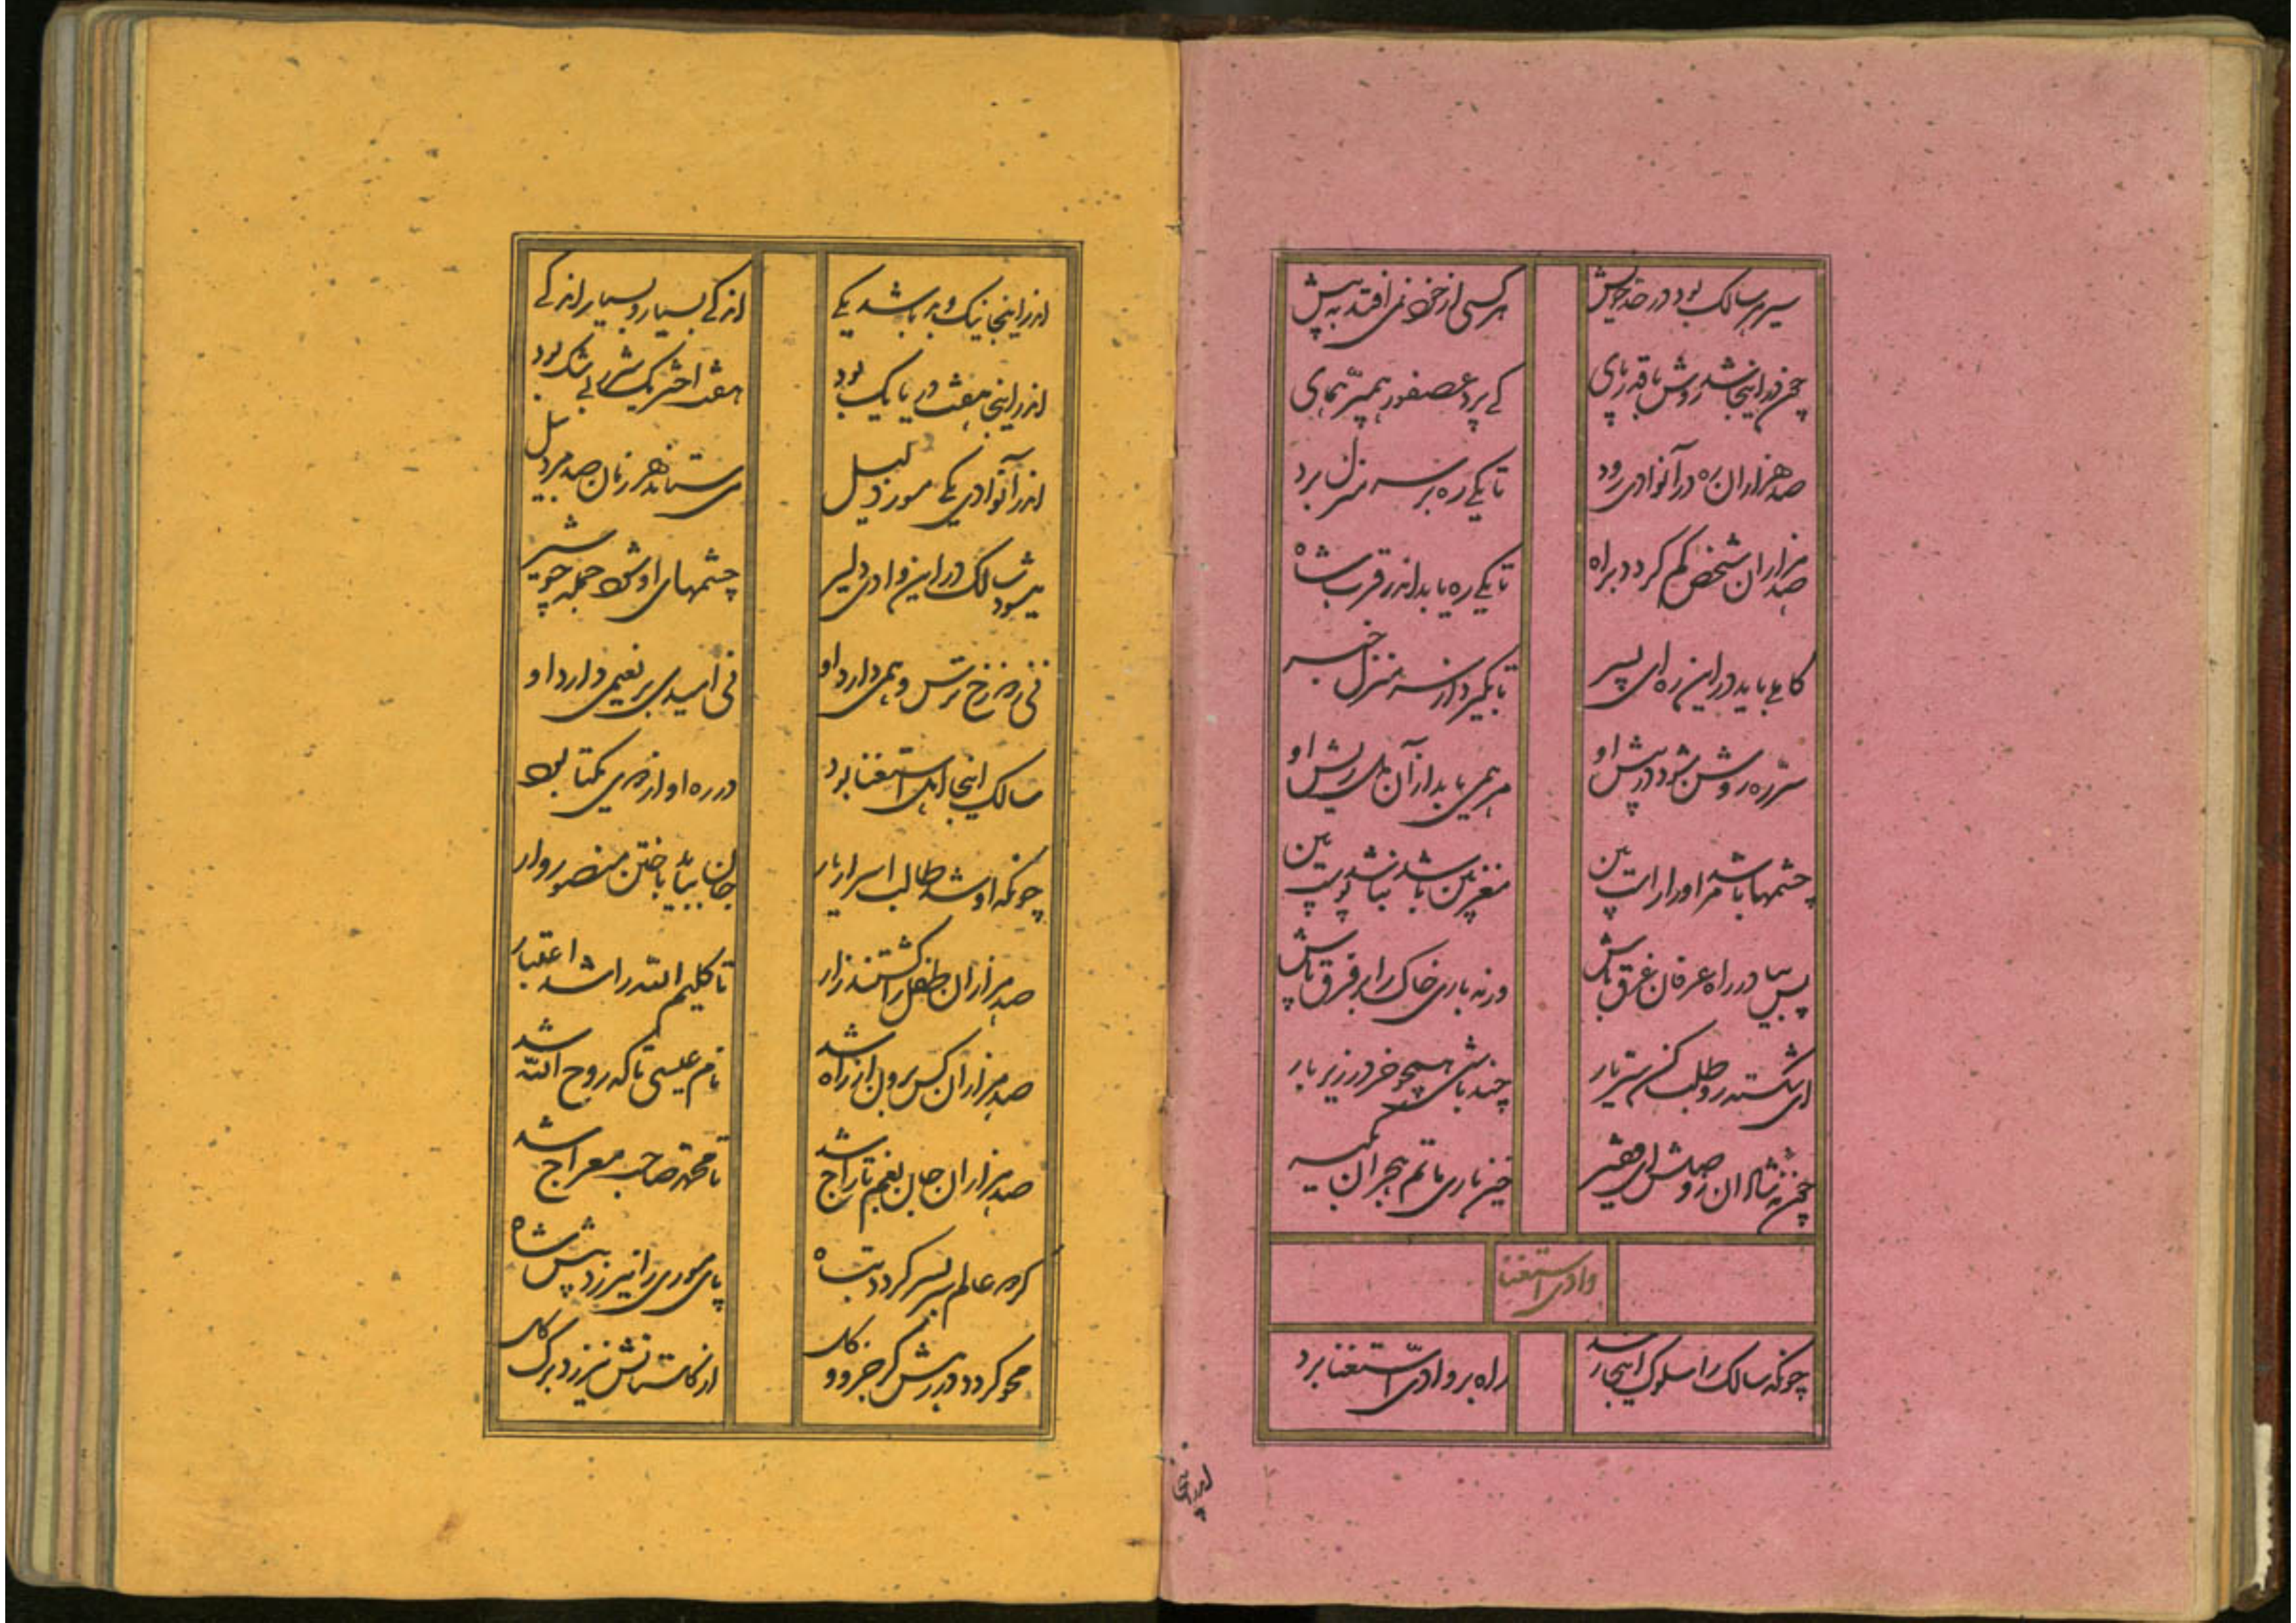 سیر هر سالک بود در حد خویش
هر کسی از خود نمی افتد به پیش
چون در اینجا شد روش با قدر پای
کے پرد عصفور همپر همای
صد هزاران ره در آنوادی رود
تا یکے ره بر سر منزل برد
صد هزاران شخص کم کردد براه
تا یکے ره یابد اندر قرب شاه
کاملے باید در این ره ای پسر
تا بگیرد از سر منزل خبر
سر ره روشن شود در پیش او
مرهمی یابد از آن دل ریش او
چشمها باشد مر او را راست بین
مغز بین باشد نباشد پوست بین
پس بیا در راه عرفان غرق باش
ورنه باری خاک را بر فرق پاش
ای شکسته رو طلب کن سر یار
چند باشی همچو خر در زیر بار
چون نه شادان ز وصلش ای فقیر
خیز باری ماتم هجران بگیر
وادی استغنا
چونکه سالک را سلوک اینجا رسد
راه بر وادی استغنا برد
اندر اینجا
اندر اینجا نیک و بد باشد یکے
اندکے بسیار و بسیار اندکے
اندر اینجا هفت دریا یک بود
هفت اخگر یک شرر بی شک بود
اندر آنوادی یکے مور ذلیل
می ستاند هر زمان صد مرد پیل
میشود سالک در این وادی دلیر
چشمهای او شود جمله چو شیر
نی ز دوزخ ترس و همی دارد او
نی امیدی بر نعیمی دارد او
سالک اینجا اهل استغنا بود
در ره او از همه یکتا بود
چونکه او شد طالب اسرار یار
جان بباید باختن منصور وار
صد هزاران طفل را کشتند زار
تا کلیم الله را شد اعتبار
صد هزاران کس برون از راه شد
نام عیسی تا که روح الله شد
صد هزاران جان بغم تاراج شد
تا محمد صاحب معراج شد
کر همه عالم بسر کردد تباه
پای موری را نیرزد پیش شاه
محو کردد در رهش کر جزو و کل
از کلستانش نیرزد برک کل